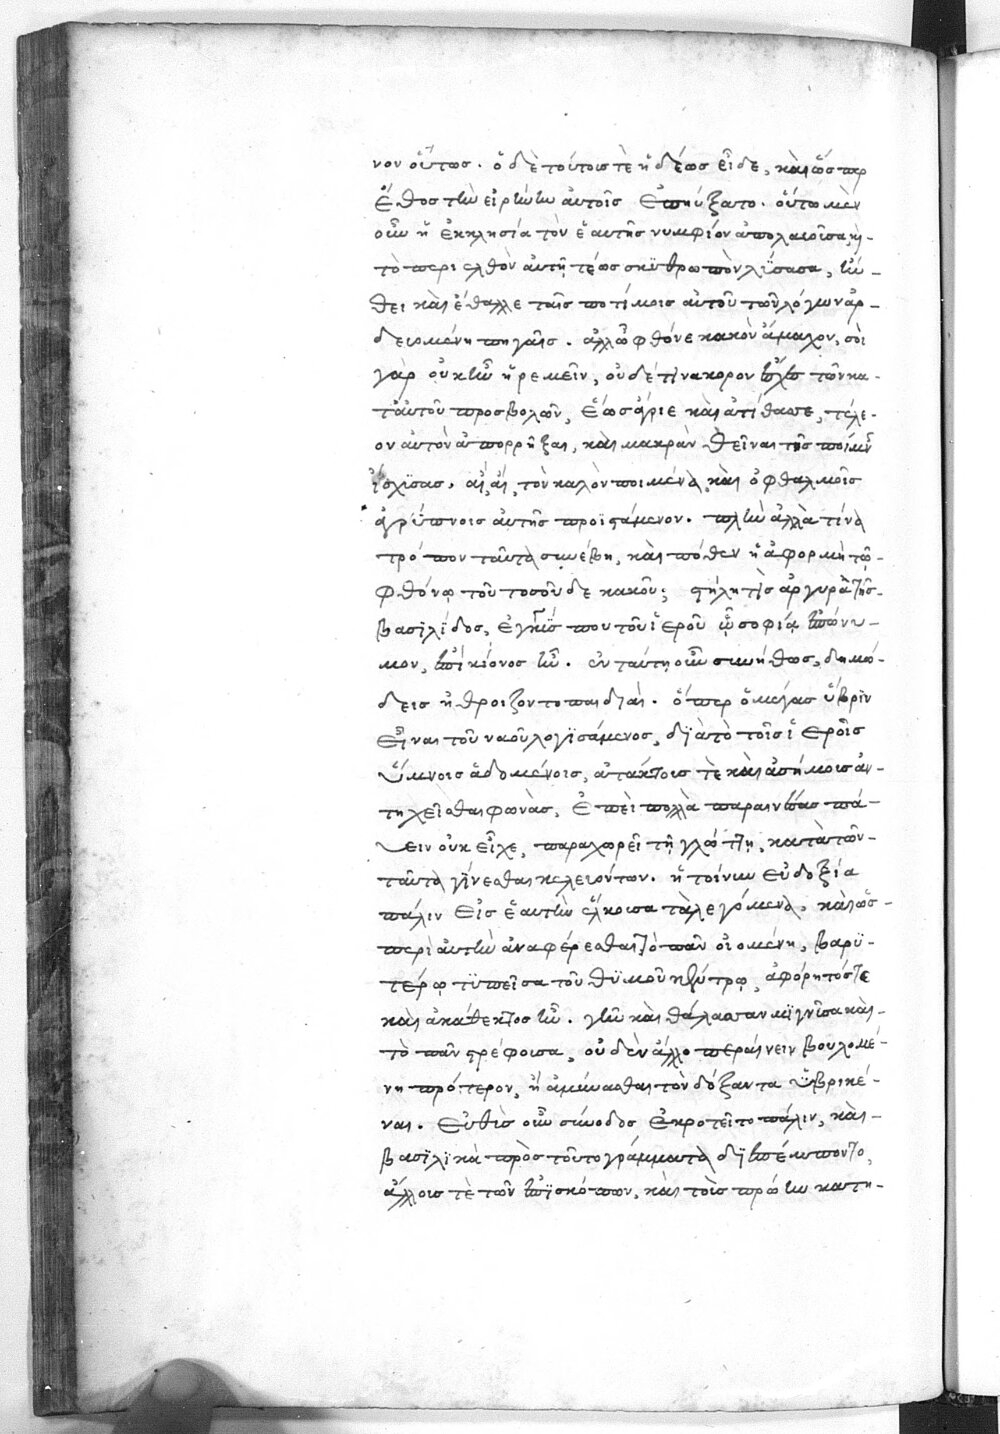 νον οὕτως. ὁ δὲ τούτοις τὲ ἡδέως εἶδε, καὶ ὥσπερ
ἔθος τὴν εἰρήνην αὐτοῖς ἐπηύξατο. οὕτω μὲν
οὖν ἡ ἐκκλησία τὸν ἑαυτῆς νυμφίον ἀπολαβοῦσα, καὶ
τὸ περιελθὸν αὐτῇ τέως σκυθρωπὸν λύσασα, ἤν-
θει καὶ ἔθαλλε ταῖς ποτίμοις αὐτοῦ τῶν λόγων ἀρ-
δευομένη πηγαῖς. ἀλλ' ὦ φθόνε κακὸν ἄμαχον, σοὶ
γὰρ οὐκ ἦν ἠρεμεῖν, οὐδέ τινα κόρον τῶν κα-
τ' αὐτοῦ προσβολῶν, ἕως ἄγριε καὶ ἀτίθασε, τέλε-
ον αὐτὸν ἀπορρῆξαι, καὶ μακρὰν θεῖναι τῆς ποίμνης
ἴσχυσας. αἲ, αἲ, τὸν καλὸν ποιμένα, καὶ ὀφθαλμοῖς
ἀγρύπνοις αὐτῆς προϊστάμενον. πλὴν ἀλλὰ τίνα
τρόπον ταῦτα συνέβη, καὶ πόθεν ἡ ἀφορμὴ τῷ
φθόνῳ τοῦ τοσοῦδε κακοῦ; στήλη τίς ἀργυρᾶ τῆς
βασιλίδος, ἐγγύς που τοῦ ἱεροῦ ᾧ σοφία ἐπώνυ-
μον, ἐπὶ κίονος ἦν. ἐν ταύτῃ οὖν συνήθως, δημώ-
δεις ἠθροίζοντο παιδιαί. ὅπερ ὁ μέγας ὕβριν
εἶναι τοῦ ναοῦ λογισάμενος, διὰ τὸ τοῖς ἱεροῖς
ὕμνοις ᾀδομένοις, ἀτάκτοις τὲ καὶ ἀσήμοις ἀν-
τηχεῖσθαι φωνὰς, ἐπεὶ πολλὰ παραινέσας πά-
ειν οὐκ εἶχε, παραχωρεῖ τῇ γλώττῃ, κατὰ τῶν
ταῦτα γίνεσθαι κελευόντων. ἡ τοίνυν εὐδοξία
πάλιν εἰς ἑαυτὴν ἕλκουσα τὰ λεγόμενα, καὶ ὥς-
περ εἰ αὐτὴν ἀναφέρεσθαι τὸ πᾶν οἰομένη, βαρυ-
τέρῳ τυπεῖσα τοῦ θυμοῦ κέντρῳ, ἀφόρητός τε
καὶ ἀκάθεκτος ἦν. γῆν καὶ θάλασσαν μιγνῦσα καὶ
τὸ πᾶν στρέφουσα, οὐδὲν ἄλλο περαίνειν βουλομέ-
νη πρότερον, ἢ ἀμύνασθαι τὸν δόξαντα ὑβρικέ-
ναι. εὐθὺς οὖν σύνοδος ἐκροτεῖτο πάλιν, καὶ
βασιλικὰ πρὸς τοῦτο γράμματα διεπέμποντο,
ἄλλοις τὲ τῶν ἐπισκόπων, καὶ τοῖς πρώην κατη-